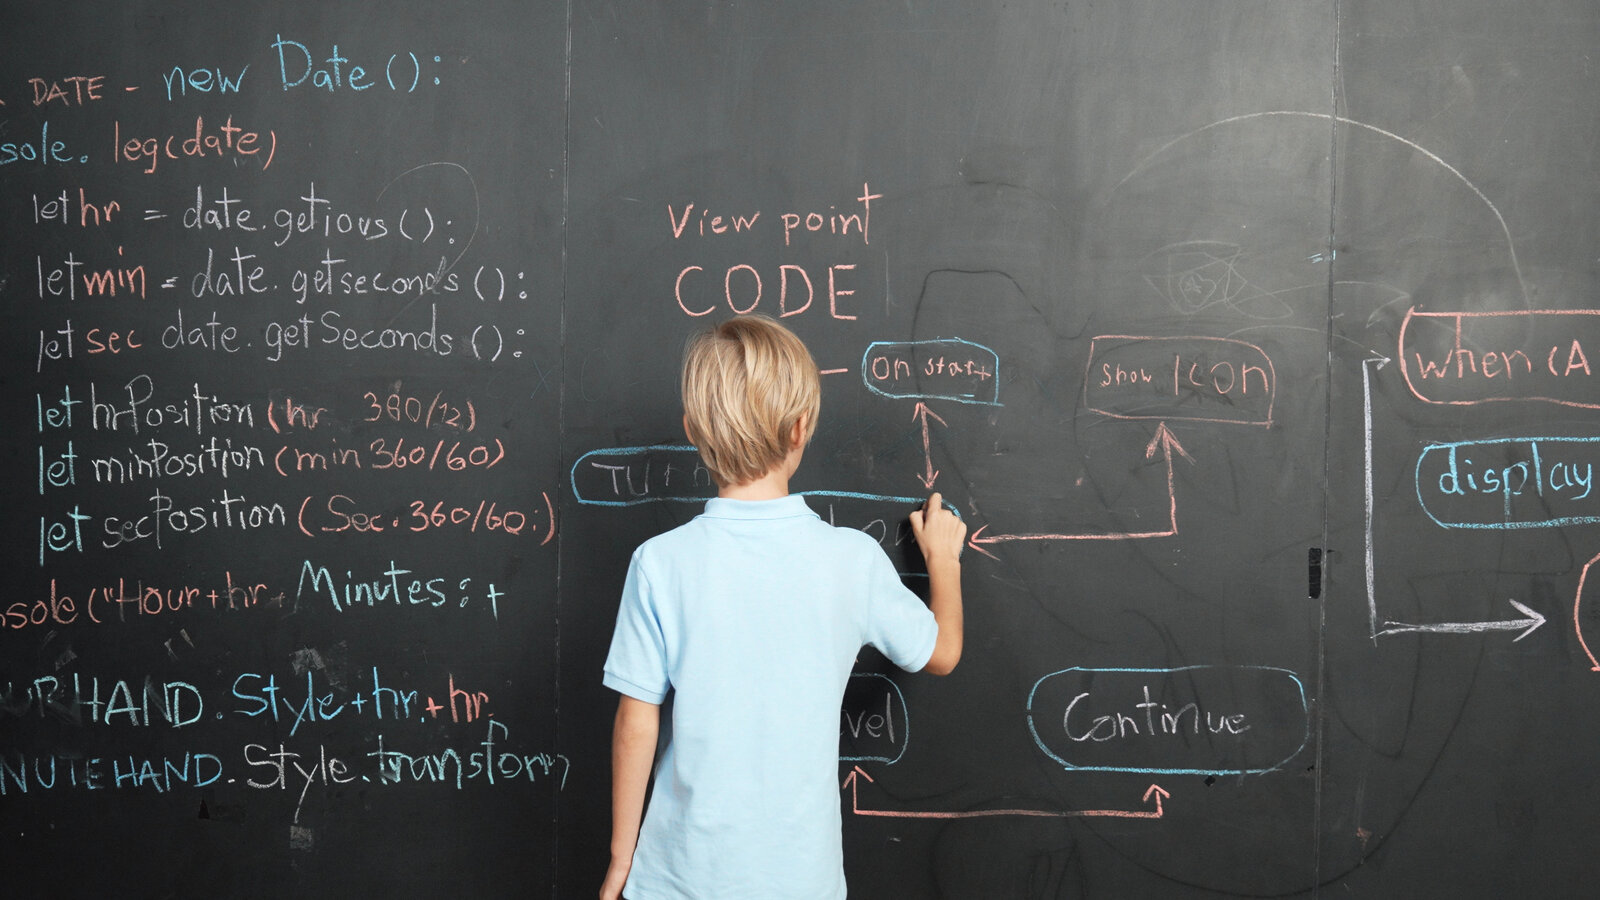 DATE - new Date():
sole. leg(date)
let hr = date.getious():
let min = date.getseconds():
let sec date.getSeconds():
let hrPosition (hr. 360/12)
let minPosition (min 360/60)
let secPosition (Sec. 360/60:)
sole ("Hour+hr+ Minutes: +
URHAND. Style+hr.+hr.
NUTEHAND. Style.transform
View point
CODE
- On start
Show Icon
when (A
display
vel
Continue